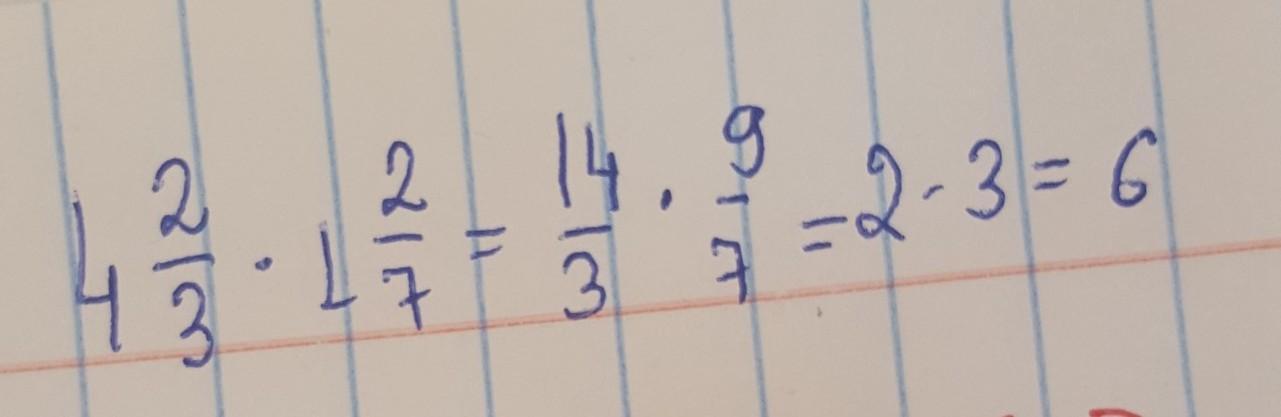 4 2/3 · 1 2/7 = 14/3 · 9/7 = 2 · 3 = 6